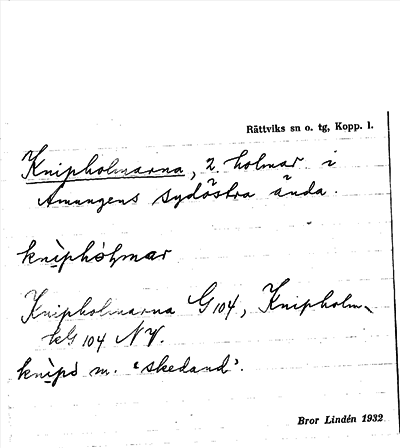 Rättviks sn o. tg, Kopp. l.
Knipholmarna, 2 holmar i
Amungens sydöstra ända.
knìphòɫmar
Knipholmarna G 104, Knipholm-
kG 104 NV.
knìpò m. "skedand".
Bror Lindén 1932